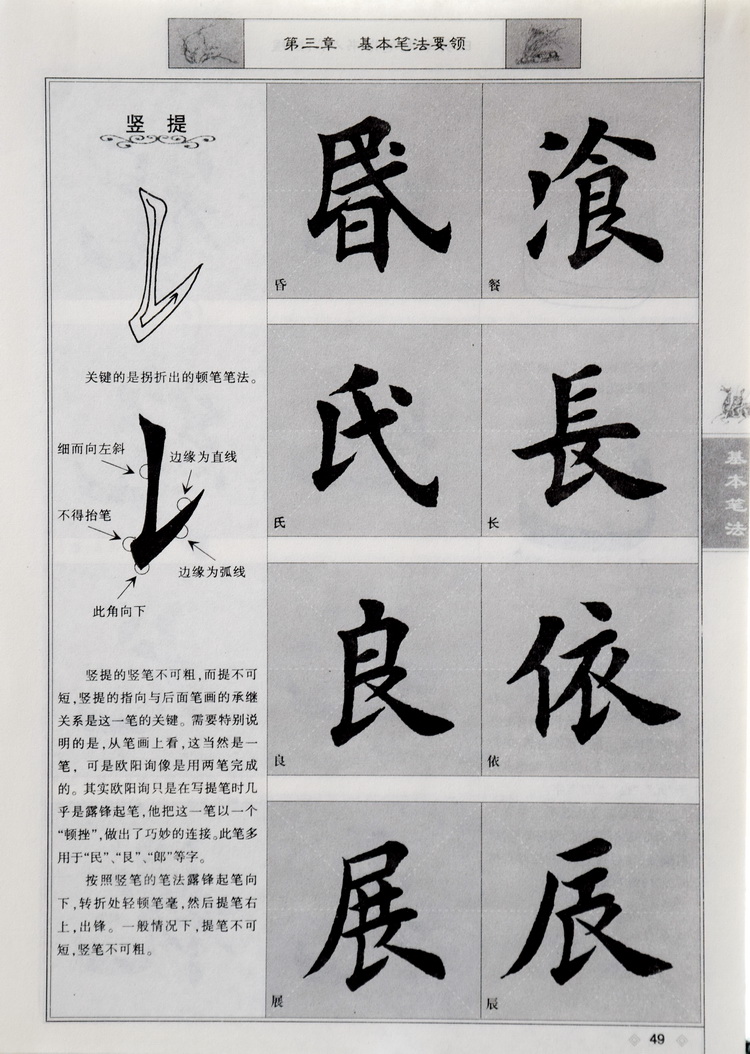 第三章 基本笔法要领
竖 提
关键的是拐折出的顿笔笔法。
细而向左斜
边缘为直线
不得抬笔
边缘为弧线
此角向下
竖提的竖笔不可粗,而提不可
短,竖提的指向与后面笔画的承继
关系是这一笔的关键。需要特别说
明的是,从笔画上看,这当然是一
笔,可是欧阳询像是用两笔完成
的。其实欧阳询只是在写提笔时几
乎是露锋起笔,他把这一笔以一个
“顿挫”,做出了巧妙的连接。此笔多
用于“民”、“艮”、“郎”等字。
按照竖笔的笔法露锋起笔向
下,转折处轻顿笔毫,然后提笔右
上,出锋。一般情况下,提笔不可
短,竖笔不可粗。
昬 湌
昏 餐
氏 長
氏 长
良 依
良 依
展 辰
展 辰
基本笔法
49